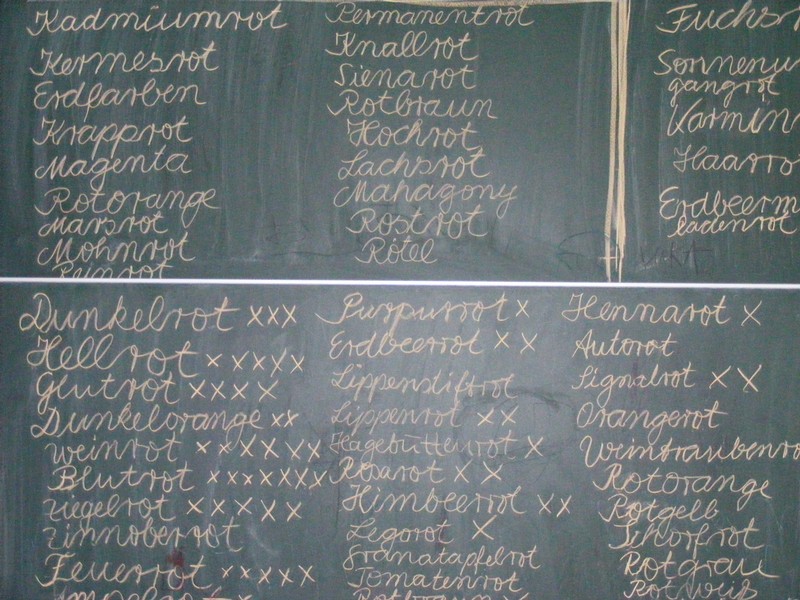 Kadmiumrot
Kermesrot
Erdfarben
Krapprot
Magenta
Rotorange
Marsrot
Mohnrot
Permanentrot
Knallrot
Sienarot
Rotbraun
Hochrot
Lachsrot
Mahagony
Rostrot
Rötel
Fuchsr
Sonnenu
gangrot
Karmin
Haarro
Erdbeerm
ladenrot
Dunkelrot xxx
Hellrot xxxxx
Glutrot xxxx
Dunkelorange xx
weinrot xxxxxx
Blutrot xxxxxxx
ziegelrot xxxxx
zinnoberrot
Feuerrot xxxxx
Purpurrot x
Erdbeerrot xx
Lippenstiftrot
Lippenrot xx
Hagebuttenrot x
Rosarot xx
Himbeerrot xx
Legorot x
Granatapfelrot
Tomatenrot
Rotbraun x
Hennarot x
Autorot
Signalrot xx
Orangerot
Weintraubenro
Rotorange
Rotgelb
Schorfrot
Rotgrau
Rotweiß